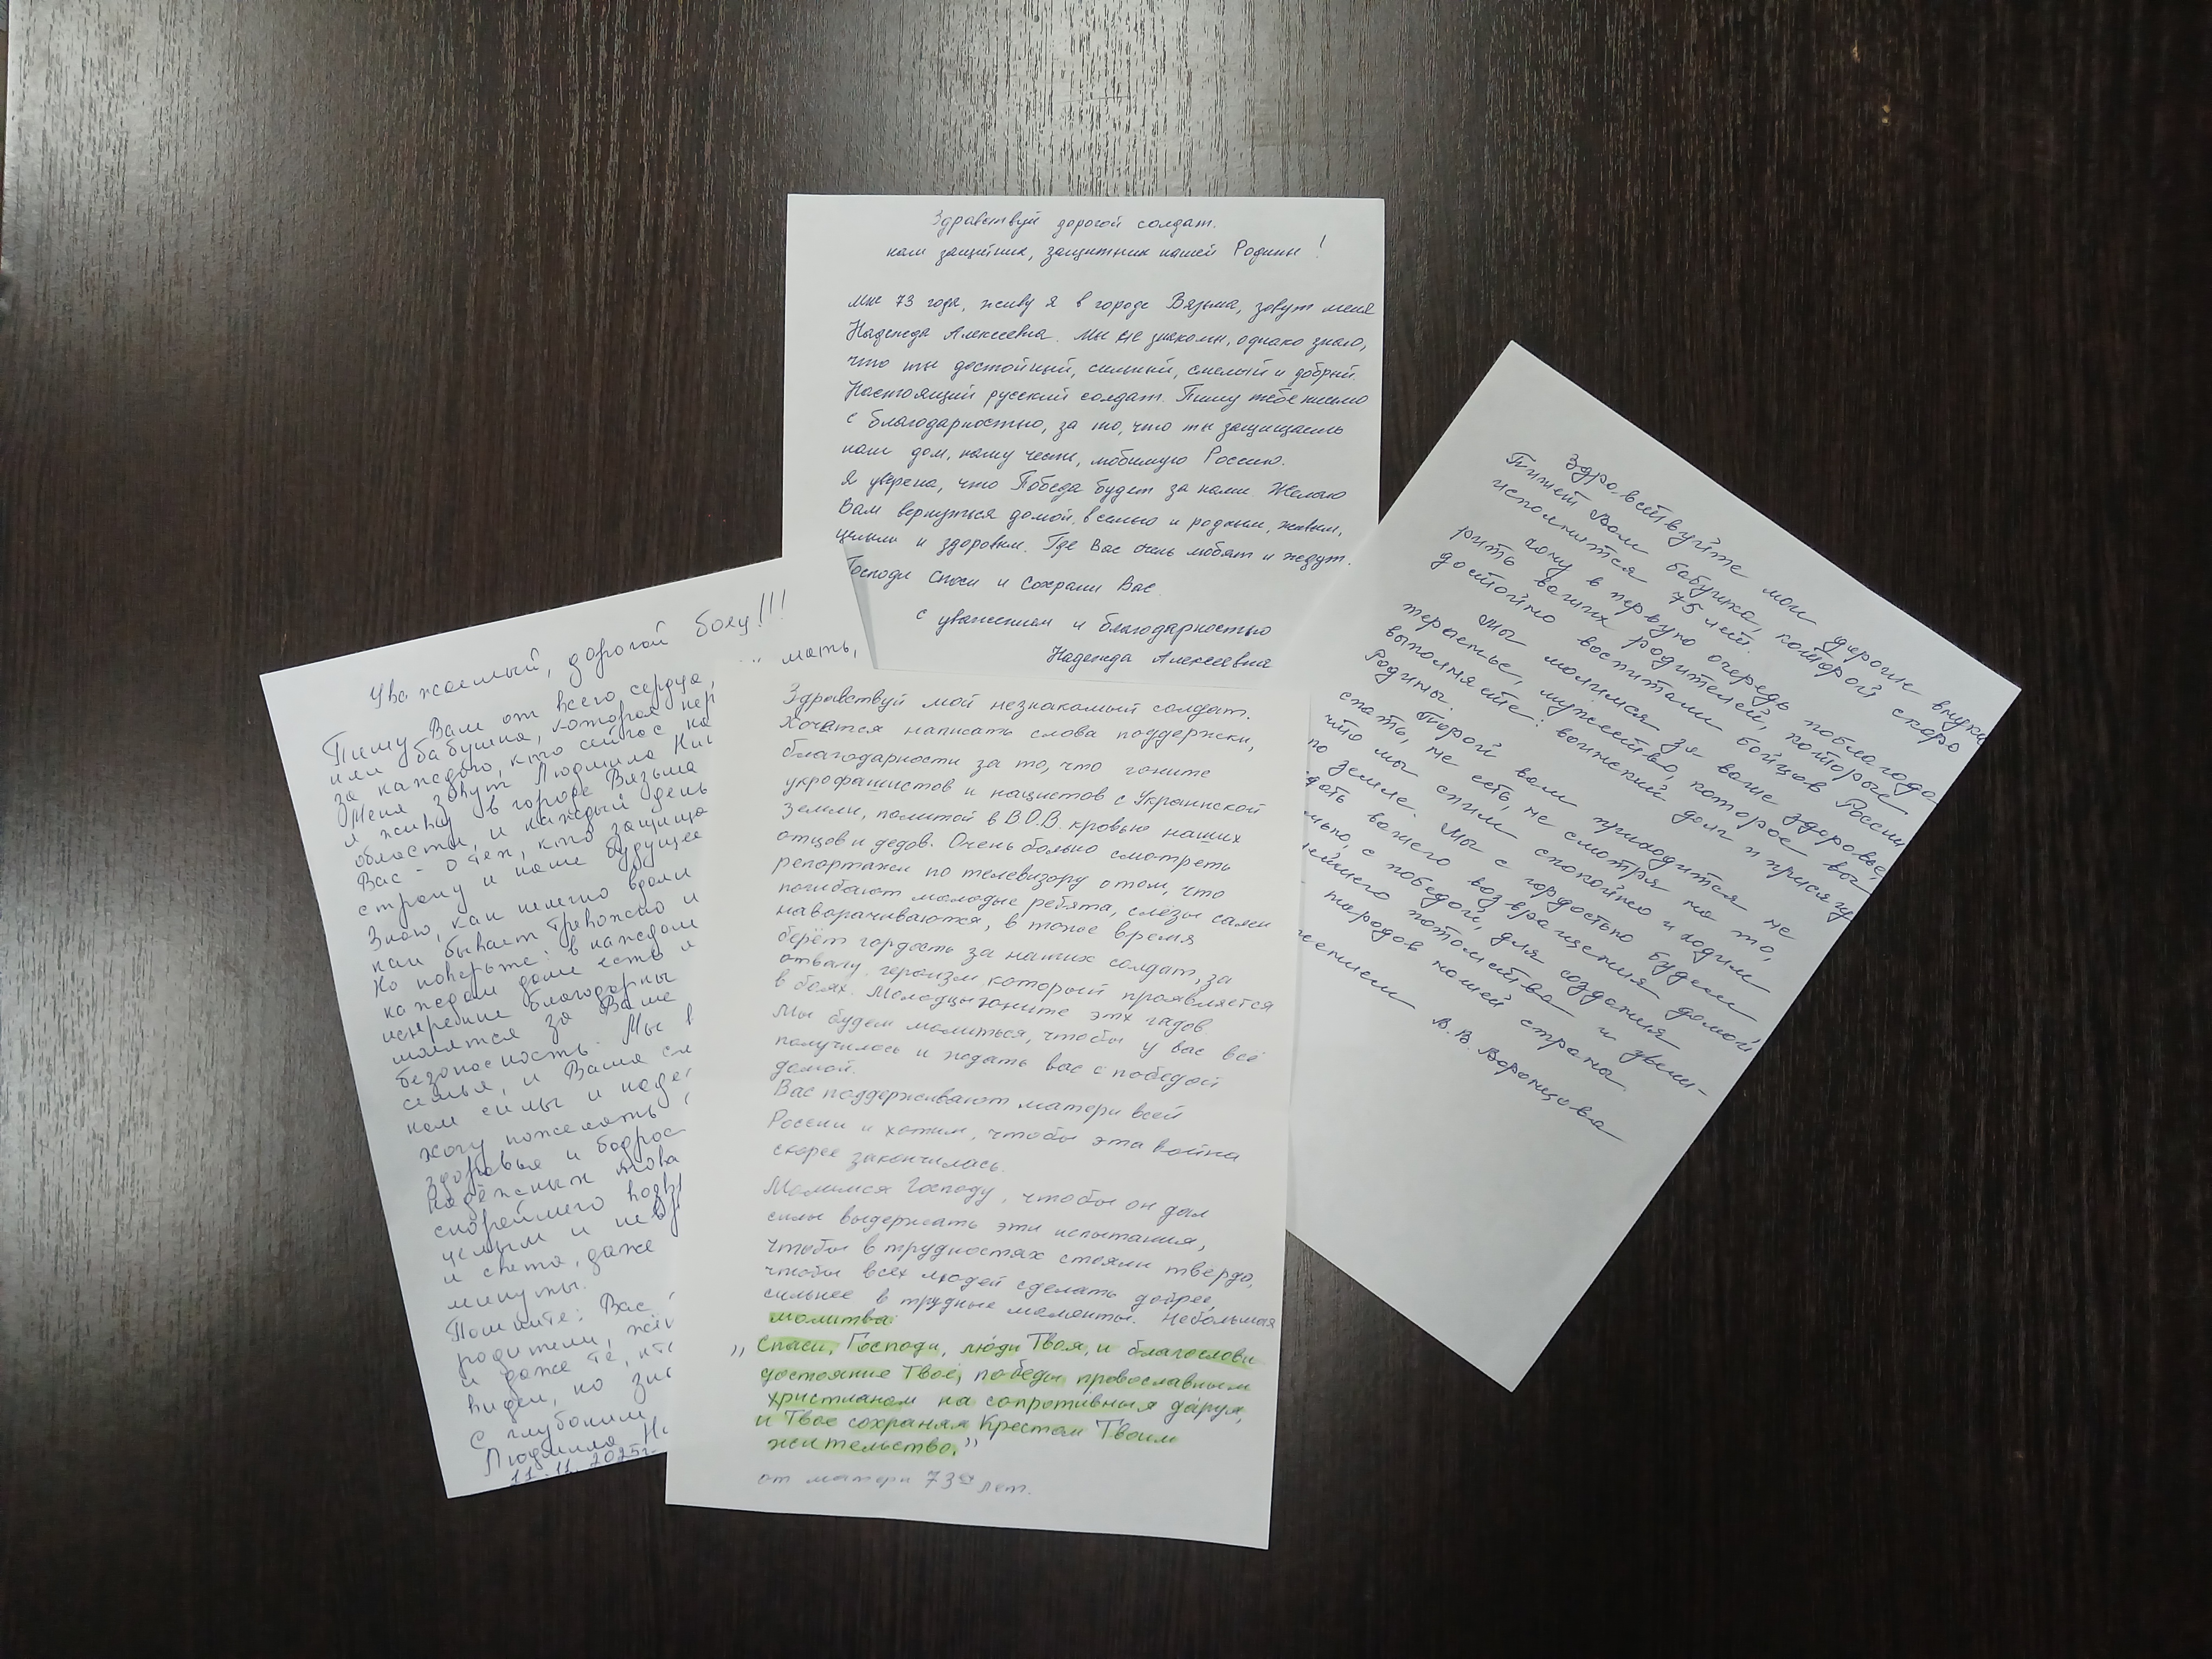 Здравствуй дорогой солдат.
наш защитник, защитник нашей Родины!
Мне 73 года, живу я в городе Вязьма, зовут меня
Надежда Алексеевна. Мы не знакомы, однако знаю,
что ты достойный, сильный, смелый и добрый.
Настоящий русский солдат. Пишу тебе письмо
с благодарностью, за то, что ты защищаешь
наш дом, нашу честь, любимую Россию.
Я уверена, что Победа будет за нами. Желаю
Вам вернуться домой, в семью и родным, живым,
целым и здоровым. Где Вас очень любят и ждут.
Господи Спаси и Сохрани Вас.
с уважением и благодарностью
Надежда Алексеевна
Уважаемый, дорогой боец!!!
Пишу Вам от всего сердца,
мать,
или бабушка, которая пер
за каждого, кто сейчас на
Меня зовут Людмила Ни
я живу в городе Вязьма
области, и каждый день
Вас - о тех, кто защища
страну и наше будущее
Знаю, как нелегко вдали
как бывает тревожно и
Но поверьте: в каждом
каждом доме есть л
искренне благодарны
молятся за Ваше
безопасность. Мы в
семья, и Ваша см
нам силы и наде
хочу пожелать
здоровья и бодрос
надёжных това
скорейшего возвр
целым и невр
и света, даже
минуты.
Помните: Вас
родители, жён
и даже те, кто
виден, но зна
С глубоким
Людмила Ни
11.11.2025г.
Здравствуй мой незнакомый солдат.
Хочатся написать слова поддержки,
благодарности за то, что гоните
укрофашистов и нацистов с Украинской
земли, политой в В.О.В. кровью наших
отцов и дедов. Очень больно смотреть
репортажи по телевизору о том, что
погибают молодые ребята, слёзы сами
наворачиваются, в тоже время
берёт гордость за наших солдат, за
отвагу, героизм, который проявляется
в боях. Молодцы гоните этих гадов
Мы будем молиться, чтобы у вас всё
получилось и ждать вас с победой
домой.
Вас поддерживают матери всей
России и хотим, чтобы эта война
скорее закончилась.
Молимся Господу, чтобы он дал
силы выдержать эти испытания,
чтобы в трудностях стояли твёрдо,
чтобы всех людей сделать добрее,
сильнее в трудные моменты. Небольшая
молитва:
„Спаси, Господи, лю́ди Твоя, и благослови
достояние Твое, победы православным
христианам на сопротивныя да́руя,
и Твое сохраняя Крестом Твоим
жительство.”
от матери 73х лет.
Здравствуйте мои дорогие внуки
Пишет Вам бабушка, которой скоро
исполнится 75 лет.
Хочу в первую очередь поблагода
рить ваших родителей, которые
достойно воспитали бойцов России
Мы молимся за ваше здоровье,
терпенье, мужество, которое вы
выполняете: воинский долг и присягу
Родины.
Порой вам приходится не
спать, не есть, не смотря на то,
что мы спим спокойно и ходим
по земле. Мы с гордостью будем
ждать вашего возвращения домой
с победой, для создания
нейшего потомства и
народов нашей страны
жением В.В. Воронцова